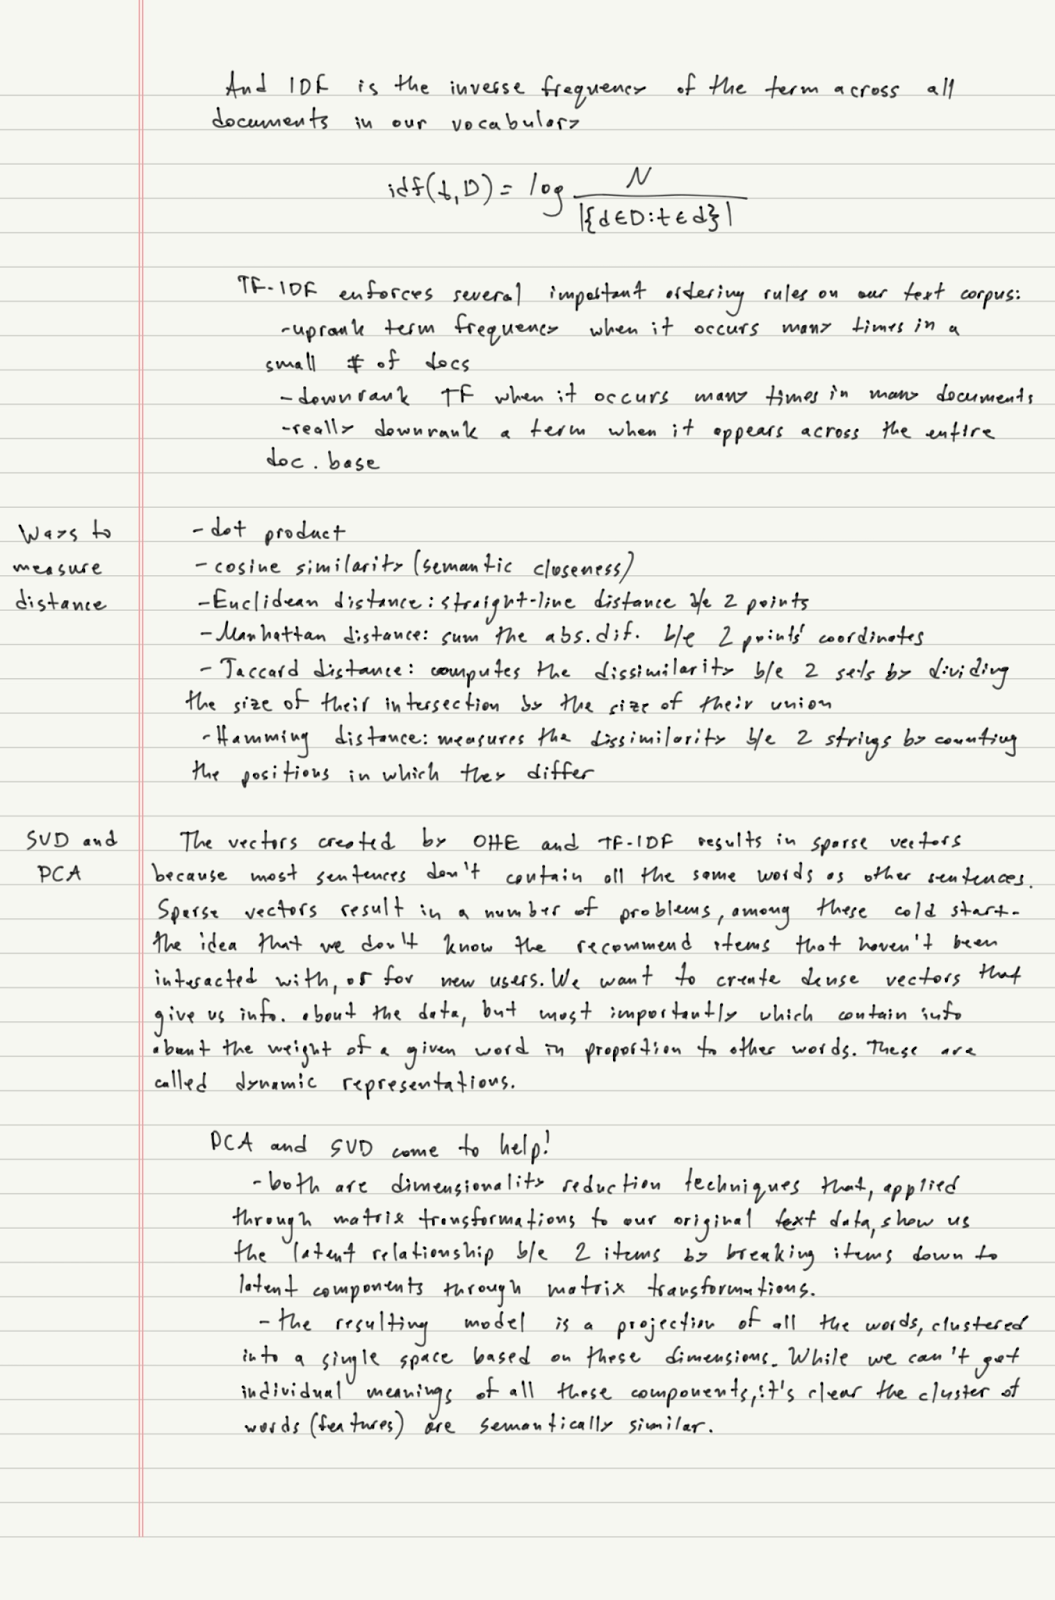 And IDF is the inverse frequency of the term across all
documents in our vocabulary
idf(t,D) = log N / |{d∈D:t∈d}|
TF-IDF enforces several important ordering rules on our text corpus:
-uprank term frequency when it occurs many times in a
small # of docs
-downrank TF when it occurs many times in many documents
-really downrank a term when it appears across the entire
doc. base
Ways to
measure
distance
-dot product
-cosine similarity (semantic closeness)
-Euclidean distance: straight-line distance b/e 2 points
-Manhattan distance: sum the abs. dif. b/e 2 points' coordinates
-Jaccard distance: computes the dissimilarity b/e 2 sets by dividing
the size of their intersection by the size of their union
-Hamming distance: measures the dissimilarity b/e 2 strings by counting
the positions in which they differ
SVD and
PCA
The vectors created by OHE and TF-IDF results in sparse vectors
because most sentences don't contain all the same words as other sentences.
Sparse vectors result in a number of problems, among these cold start-
the idea that we don't know the recommend items that haven't been
interacted with, or for new users. We want to create dense vectors that
give us info. about the data, but most importantly which contain info
about the weight of a given word in proportion to other words. These are
called dynamic representations.
PCA and SVD come to help!
-both are dimensionality reduction techniques that, applied
through matrix transformations to our original text data, show us
the latent relationship b/e 2 items by breaking items down to
latent components through matrix transformations.
-the resulting model is a projection of all the words, clustered
into a single space based on these dimensions. While we can't get
individual meanings of all these components, it's clear the cluster of
words (features) are semantically similar.